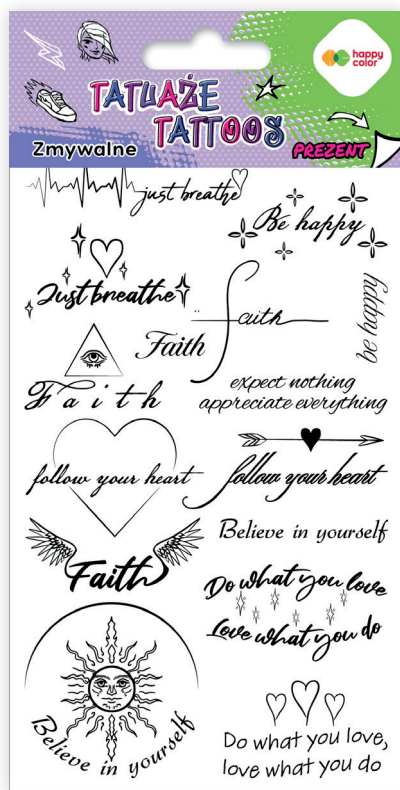 happy
color
TATUAŻE
TATTOOS
Zmywalne
PREZENT
just breathe
Be happy
Just breathe
Faith
be happy
Faith
expect nothing
appreciate everything
Faith
follow your heart
follow your heart
Believe in yourself
Faith
Do what you love
Love what you do
Believe in yourself
Do what you love,
love what you do